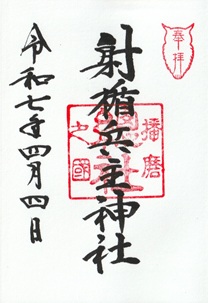 奉拝
播磨
之國
射楯兵主神社
令和七年四月四日